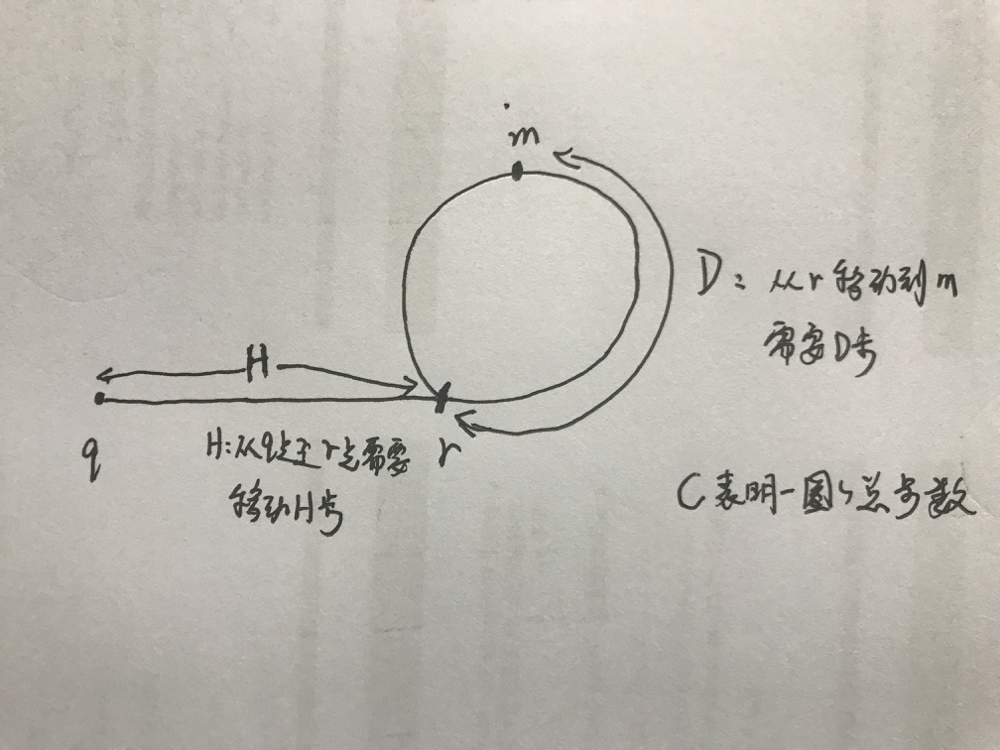 m
D: 从r移动到m
需要D步
H
q
H:从q点至r点需要
移动H步
r
C表明一圆的总步数